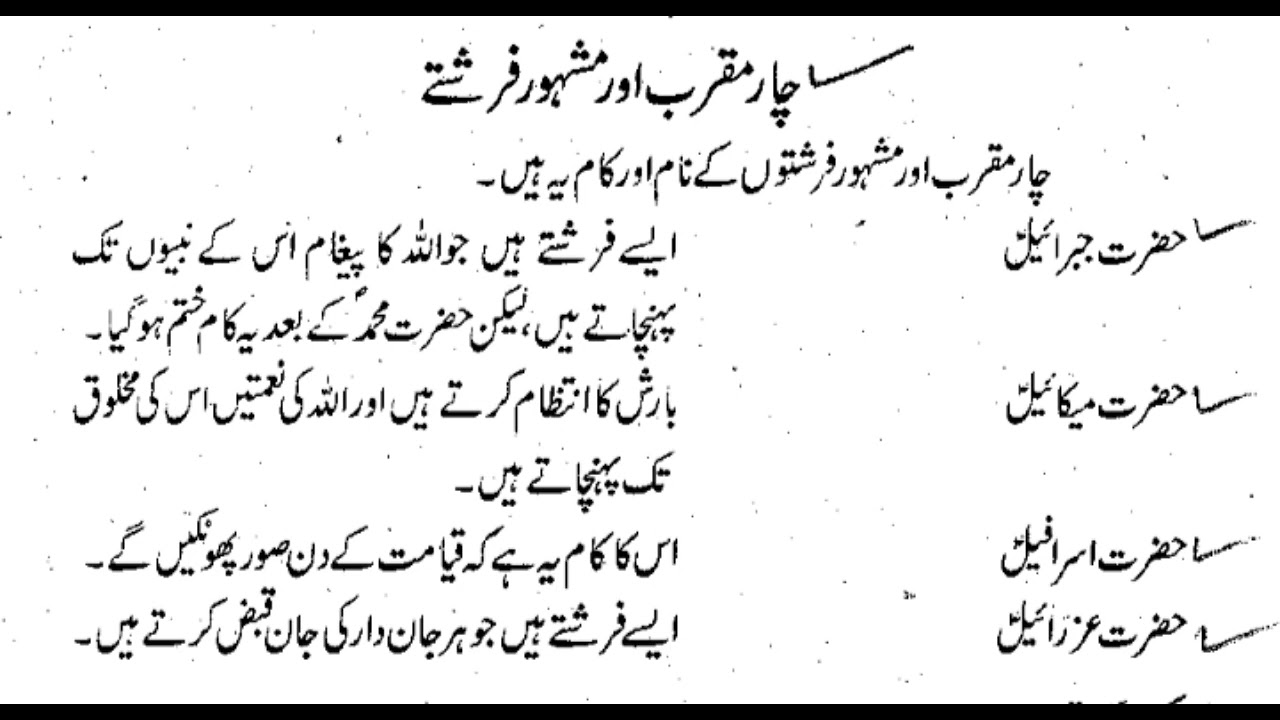 چار مقرب اور مشہور فرشتے
چار مقرب اور مشہور فرشتوں کے نام اور کام یہ ہیں۔
حضرت جبرائیلؑ ایسے فرشتے ہیں جو اللہ کا پیغام اس کے نبیوں تک
پہنچاتے ہیں، لیکن حضرت محمدؐ کے بعد یہ کام ختم ہو گیا۔
حضرت میکائیلؑ بارش کا انتظام کرتے ہیں اور اللہ کی نعمتیں اس کی مخلوق
تک پہنچاتے ہیں۔
حضرت اسرافیلؑ اس کا کام یہ ہے کہ قیامت کے دن صور پھونکیں گے۔
حضرت عزرائیلؑ ایسے فرشتے ہیں جو ہر جان دار کی جان قبض کرتے ہیں۔